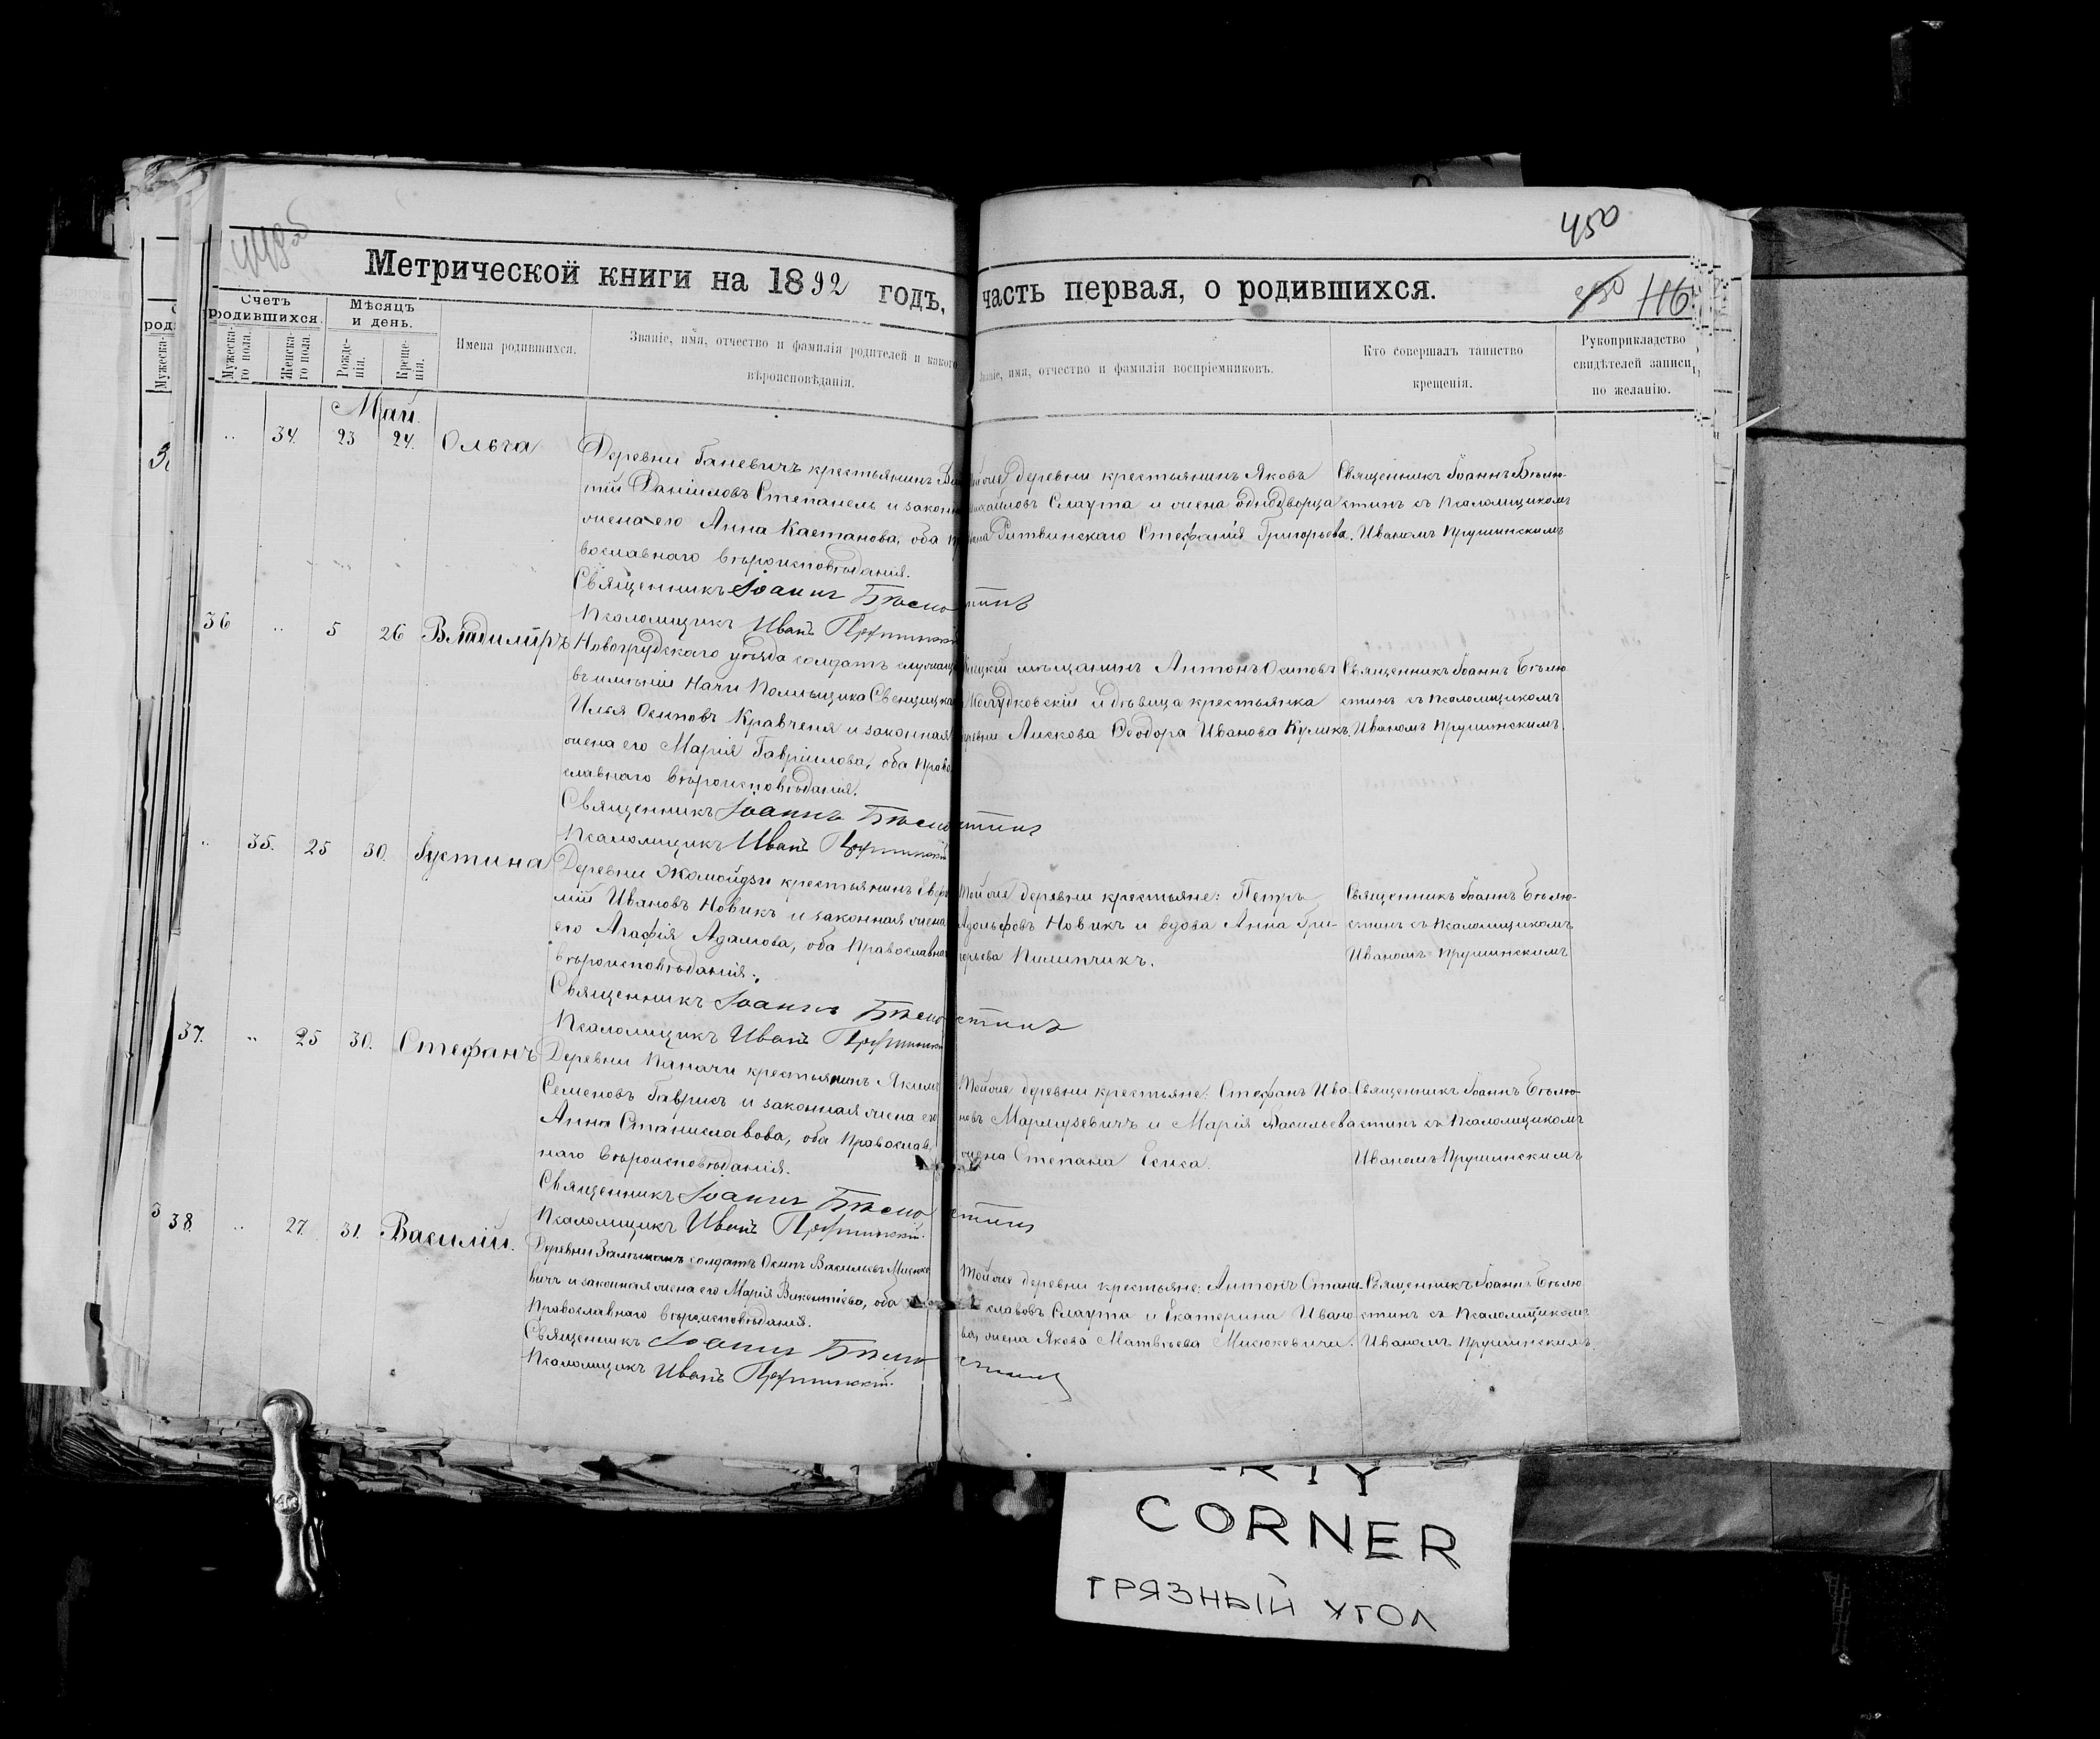 450
Метрической книги на 1892 годъ, часть первая, о родившихся.
116
Счетъ родившихся.
Мѣсяцъ и день.
Мужеска-го пола.
Женска-го пола.
Рожде-нія.
Креще-нія.
Имена родившихся.
Званіе, имя, отчество и фамилія родителей и какого
вѣроисповѣданія.
Званіе, имя, отчество и фамилія воспріемниковъ.
Кто совершалъ таинство
крещенія.
Рукоприкладство
свидѣтелей записи
по желанію.
Май.
34. 23 24. Ольга
Деревни Ганевичъ крестьянинъ
тій Даніиловъ Степанель и закон
жена его Анна Каетанова, оба п
вославнаго вѣроисповѣданія.
Священникъ Іоаннъ
Псаломщикъ Иванъ
Той же деревни крестьянинъ Яковъ
Михайловъ Слаута и жена однодворца
Ритвинскаго Стефанія Григорьева.
Священникъ Іоаннъ Бѣлю-
стинъ съ псаломщикомъ
Иваномъ Прушинскимъ
36 5 26 Владиміръ
Новогрудскаго уѣзда солдатъ служащ
въ имѣніи Начи помѣщика Свенцицка
Илья Осиповъ Кравченя и законная
жена его Марія Гавріилова, оба Право
славнаго вѣроисповѣданія.
Священникъ Іоаннъ
Псаломщикъ Иванъ
мѣщанинъ Антонъ Осиповъ
и дѣвица крестьянка
деревни Лискова Ѳеодора Иванова Куликъ.
Священникъ Іоаннъ Бѣлю
стинъ съ псаломщикомъ
Иваномъ Прушинскимъ.
35. 25 30. Іустина
Деревни Жомойдзи крестьянинъ Евфи
мій Ивановъ Новикъ и законная жена
его Агафія Адамова, оба Православна
вѣроисповѣданія.
Священникъ Іоаннъ
Псаломщикъ Иванъ
Той же деревни крестьяне: Петръ
Адольфовъ Новикъ и вдова Анна Гри-
горьева Пилипчикъ.
Священникъ Іоаннъ Бѣлю-
стинъ съ псаломщикомъ
Иваномъ Прушинскимъ
37. 25 30. Стефанъ
Деревни Паначи крестьянинъ Якимъ
Семеновъ Гаврисъ и законная жена его
Анна Станиславова, оба Православ
наго вѣроисповѣданія.
Священникъ Іоаннъ
Псаломщикъ Иванъ
Той же деревни крестьяне: Стефанъ Ива
новъ Мармузевичъ и Марія Васильева
жена Степана Еська.
Священникъ Іоаннъ Бѣлю-
стинъ съ псаломщикомъ
Иваномъ Прушинскимъ
38. 27. 31. Василій.
Деревни солдатъ Осипъ Васильевъ Мисюке
вичъ и законная жена его Марія Викентіева, оба
Православнаго вѣроисповѣданія.
Священникъ Іоаннъ
Псаломщикъ Иванъ
Той же деревни крестьяне: Антонъ Стани-
славовъ Слаута и Екатерина Ивано
ва, жена Якова Матвѣева Мисюкевича.
Священникъ Іоаннъ Бѣлю
стинъ съ псаломщикомъ
Иваномъ Прушинскимъ.
CORNER
ГРЯЗНЫЙ УГОЛ